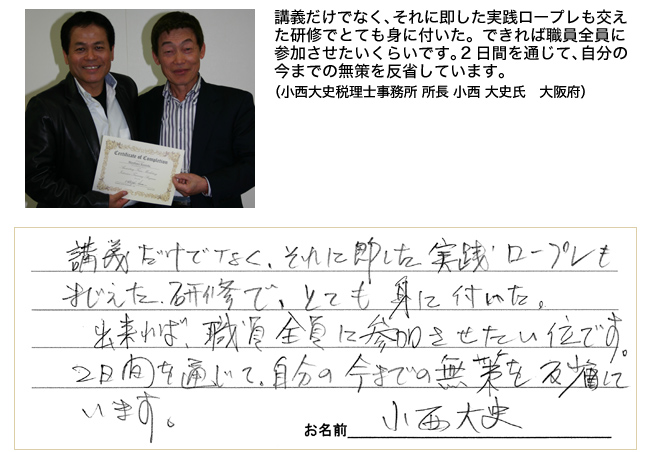 講義だけでなく、それに即した実践ロープレも交え
た研修でとても身に付いた。できれば職員全員に
参加させたいくらいです。2日間を通じて、自分の
今までの無策を反省しています。
（小西大史税理士事務所 所長 小西 大史氏　大阪府）
Certificate of Completion
講義だけでなく、それに即した実践ロープレも
まじえた研修で、とても身に付いた。
出来れば、職員全員に参加させたい位です。
2日間を通じて、自分の今までの無策を反省して
います。
お名前 小西大史